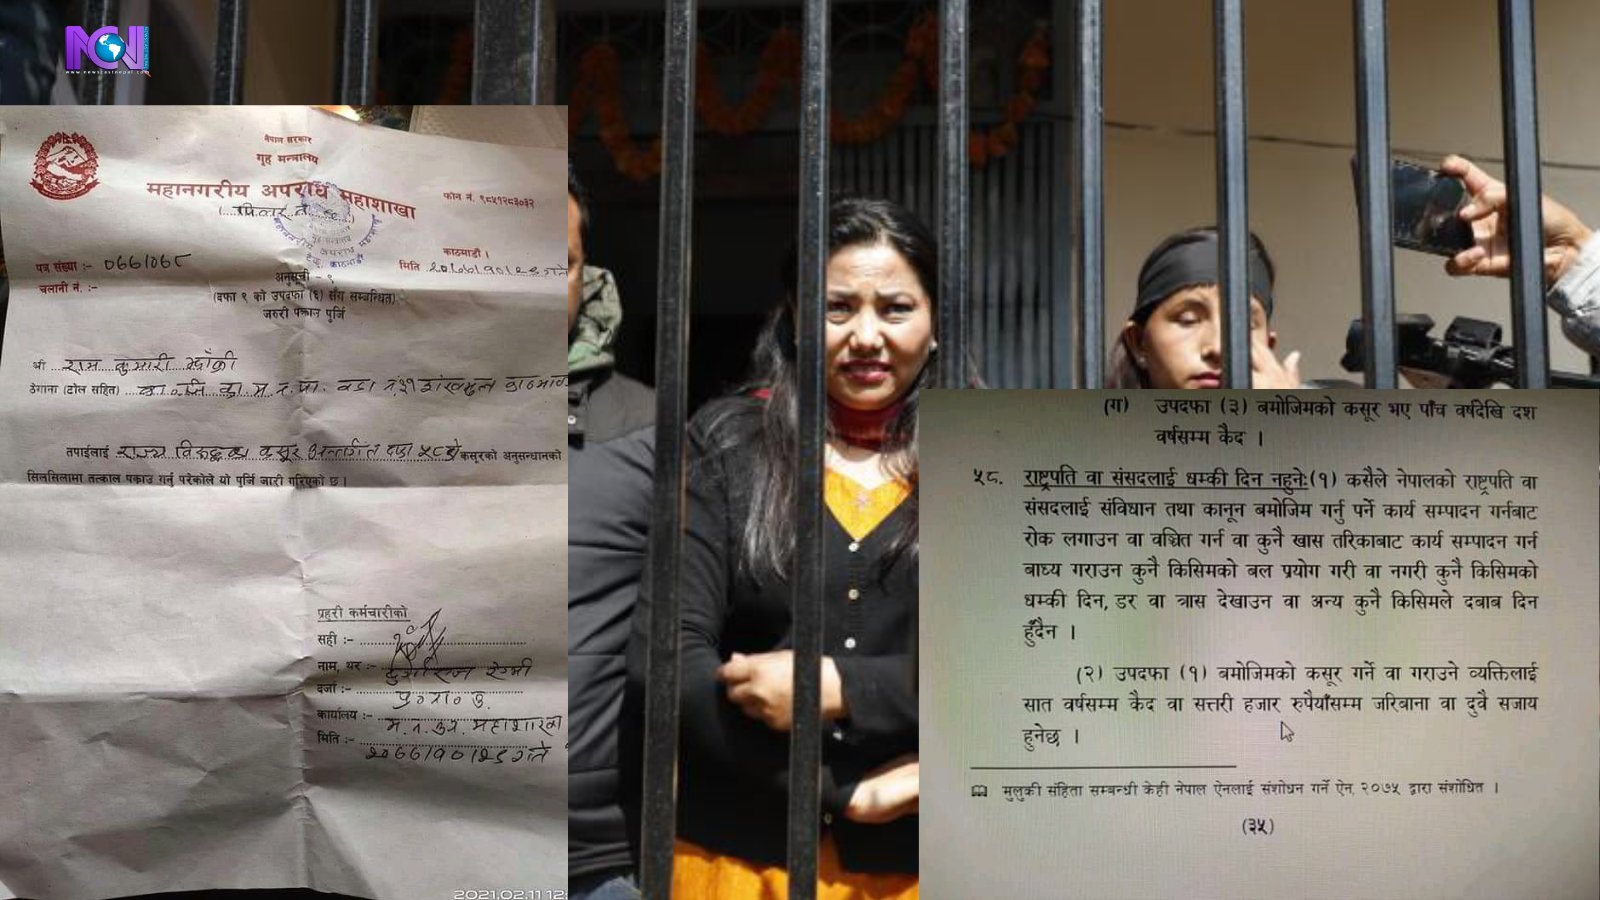 NCN
www.newscastnepal.com
नेपाल सरकार
गृह मन्त्रालय
महानगरीय अपराध महाशाखा
फोन नं. ९८५१२८३०३२
काठमाडौं ।
पत्र संख्या :- ०७७/०७८
मिति
चलानी नं. :-
अनुसूची - ९
(दफा ९ को उपदफा (६) सँग सम्बन्धित)
जरुरी पक्राउ पुर्जि
श्री राम कुमारी झाँक्री
ठेगाना (टोल सहित) का.जि. का.म.न.पा. वडा नं. ३१ शंखमुल काठमाडौं
तपाईलाई राज्य विरुद्धका कसूर अन्तर्गत दफा ५८ को कसूरको अनुसन्धानको
सिलसिलामा तत्काल पक्राउ गर्नु परेकोले यो पुर्जि जारी गरिएको छ ।
प्रहरी कर्मचारीको
सही :-
नाम, थर :- दुर्गाराज रेग्मी
दर्जा :- प्र०ना० उ.
कार्यालय :- म.न.अप. महाशाखा
मिति :- २०७७/१०/२९ गते
2021.02.11 12:
(ग) उपदफा (३) बमोजिमको कसूर भए पाँच वर्षदेखि दश
वर्षसम्म कैद ।
५८. राष्ट्रपति वा संसदलाई धम्की दिन नहुनेः(१) कसैले नेपालको राष्ट्रपति वा
संसदलाई संविधान तथा कानून बमोजिम गर्नु पर्ने कार्य सम्पादन गर्नबाट
रोक लगाउन वा वञ्चित गर्न वा कुनै खास तरिकाबाट कार्य सम्पादन गर्न
बाध्य गराउन कुनै किसिमको बल प्रयोग गरी वा नगरी कुनै किसिमको
धम्की दिन, डर वा त्रास देखाउन वा अन्य कुनै किसिमले दबाब दिन
हुँदैन ।
(२) उपदफा (१) बमोजिमको कसूर गर्ने वा गराउने व्यक्तिलाई
सात वर्षसम्म कैद वा सत्तरी हजार रुपैयाँसम्म जरिबाना वा दुवै सजाय
हुनेछ ।
मुलुकी संहिता सम्बन्धी केही नेपाल ऐनलाई संशोधन गर्ने ऐन, २०७५ द्वारा संशोधित ।
(३५)